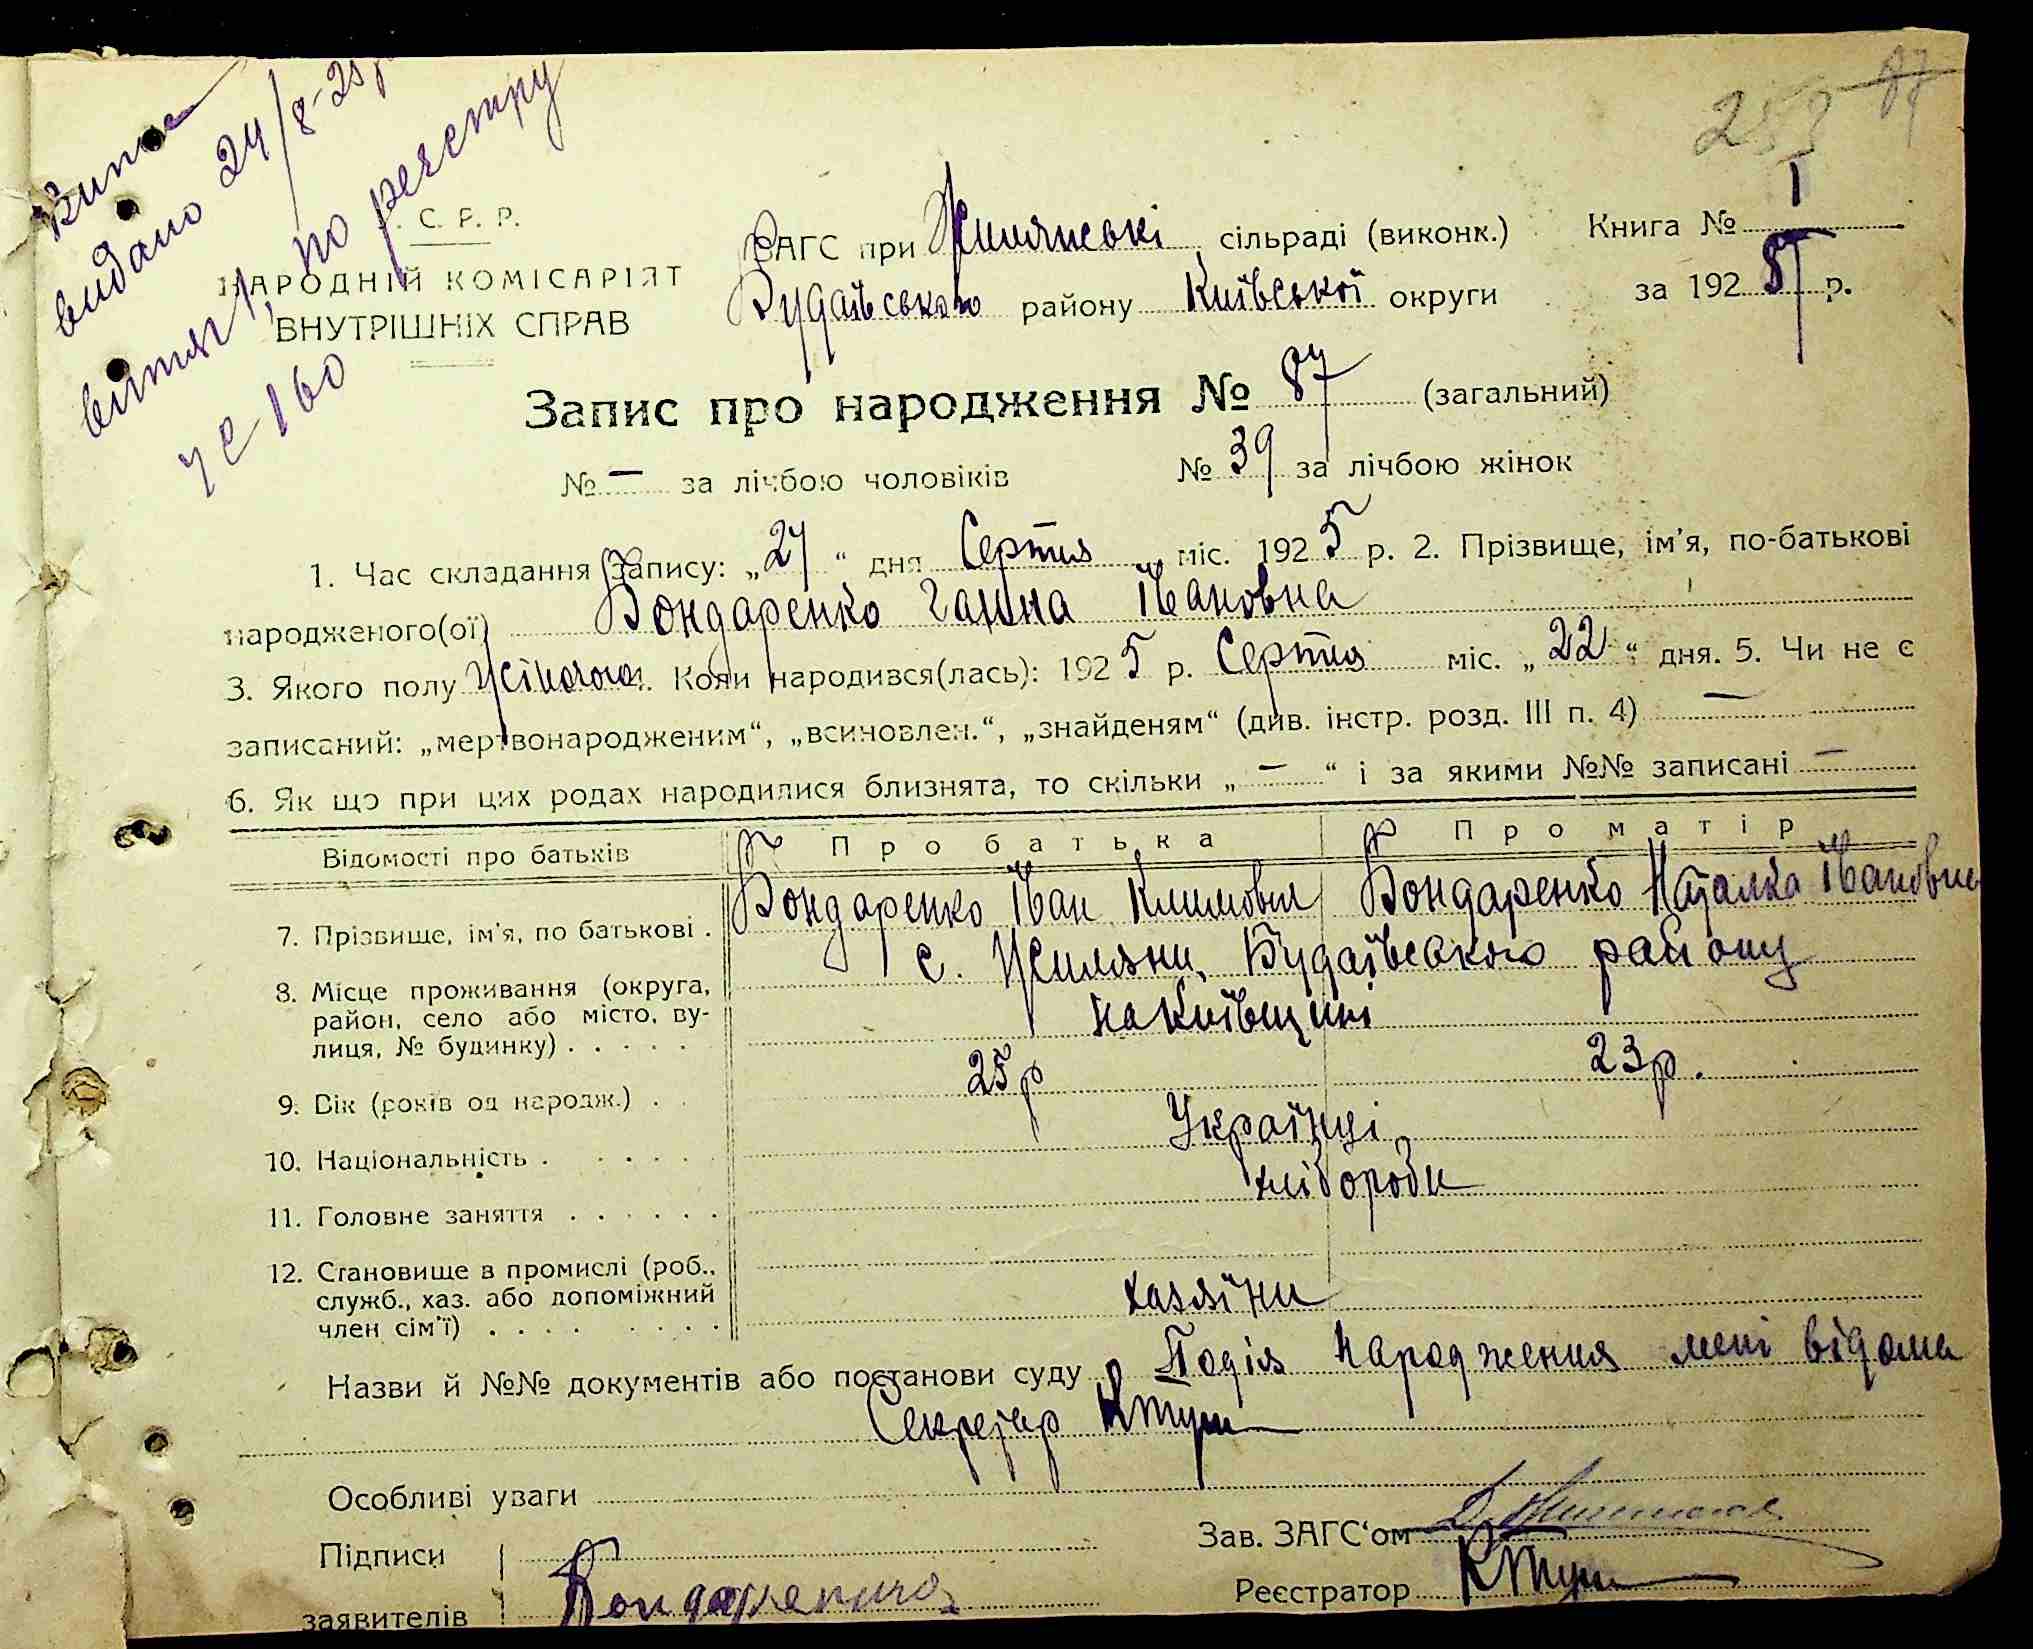 253 87
Випис
видано 24/8-25 р
витяг, по реєстру
№ 160
С. Р. Р.
НАРОДНІЙ КОМІСАРІЯТ
ВНУТРІШНІХ СПРАВ
ЗАГС при Жилянські сільраді (виконк.) Книга № I
Будаївського району Київської округи за 1925 р.
Запис про народження № 87 (загальний)
№ — за лічбою чоловіків № 39 за лічбою жінок
1. Час складання запису: „24“ дня Серпня міс. 1925 р. 2. Прізвище, ім'я, по-батькові
народженого(ої) Бондаренко Ганна Івановна
3. Якого полу Жіночого. Коли народився(лась): 1925 р. Серпня міс. „22“ дня. 5. Чи не є
записаний: „мертвонародженим“, „всиновлен.“, „знайденям“ (див. інстр. розд. III п. 4) —
6. Як що при цих родах народилися близнята, то скільки „—“ і за якими №№ записані —
Відомості про батьків Про батька Про матір
7. Прізвище, ім'я, по батькові . Бондаренко Іван Климович Бондаренко Наталка Івановна
8. Місце проживання (округа, район, село або місто, вулиця, № будинку) . . . . . с. Жиляни, Будаївського району
на Київщині
9. Вік (років од народж.) . . 25 р 23 р.
10. Національність . . . . . . Українці
11. Головне заняття . . . . . . хлібороби
12. Становище в промислі (роб., служб., хаз. або допоміжний член сім'ї) . . . . . . . . хазяїни
Назви й №№ документів або постанови суду Подія народження мені відома
Секретар
Особливі уваги
Зав. ЗАГС'ом
Підписи
заявителів Бондаренко
Реєстратор